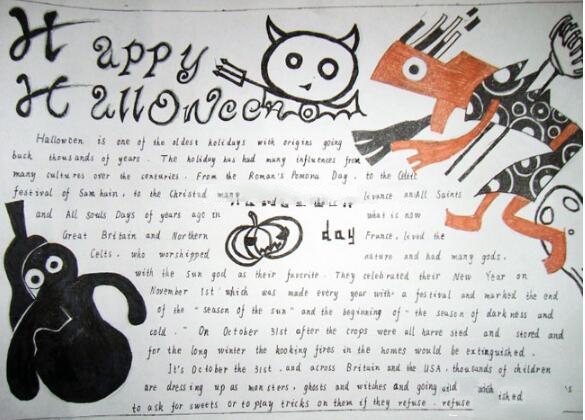 Happy
Halloween
Halloween is one of the oldest holidays with origins going
back thousands of years. The holiday has had many influences from
many cultures over the centuries. From the Roman's Pomona Day, to the Celtic
festival of Samhain, to the Christud many livance and All Saints
and All Souls Days of years ago in what is now
Great Britain and Northern day France, lived the
Celts. who worshipped nature and had many gods.
with the sun god as their favorite. They celebrated their New Year on
November 1st which was made every year with a festival and marked the end
of the "season of the sun" and the beginning of "the season of darkness and
cold." On October 31st after the crops were all harve sted and stored and
for the long winter the kooking fires in the homes would be extinguished.
It's October the 31st, and across Britain and the USA, thousands of children
are dressing up as monsters, ghosts and witches and going ished
to ask for sweets or to play tricks on them if they refuse. refuse